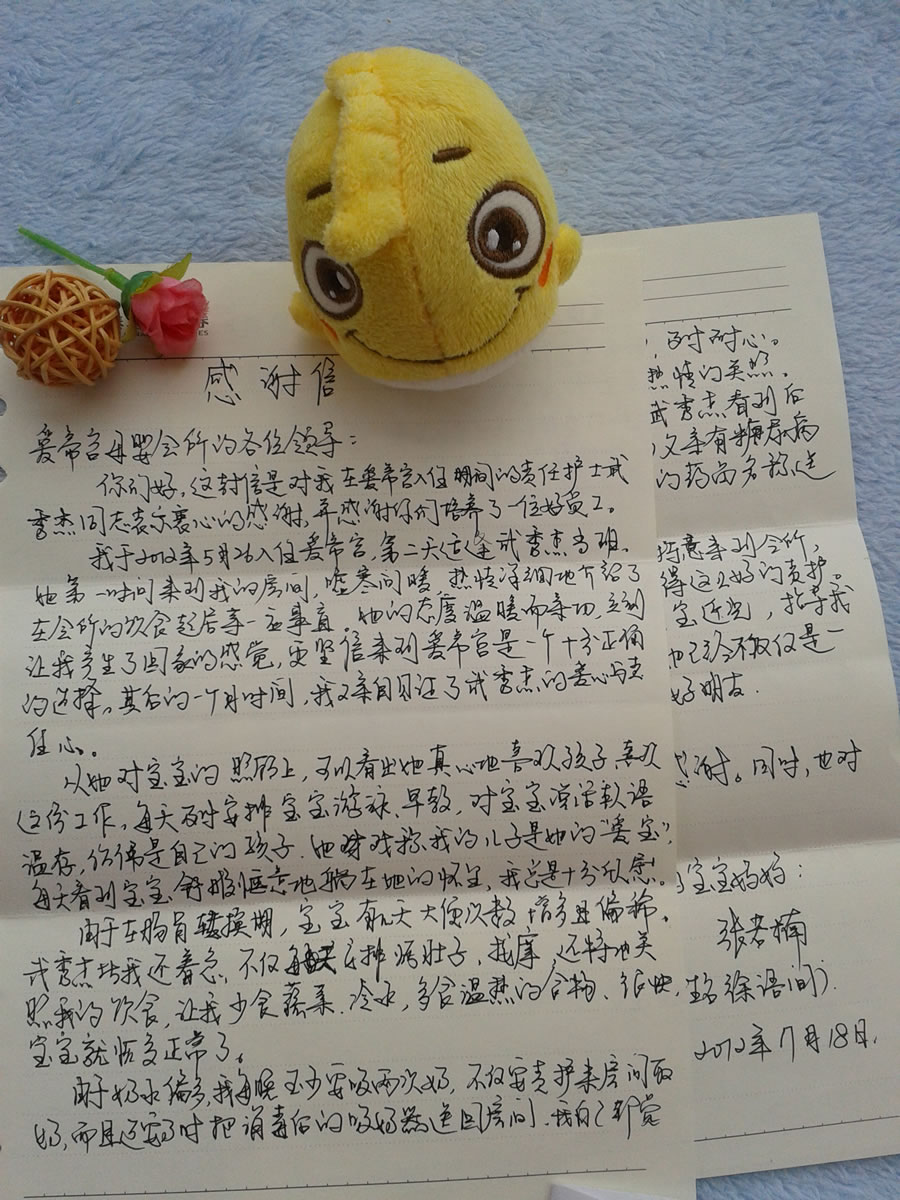 感谢信
爱帝宫母婴会所的各位领导：
你们好，这封信是对我在爱帝宫入住期间的责任护士武
秀杰同志表示衷心的感谢，并感谢你们培养了一位好员工。
我于2012年5月26入住爱帝宫，第二天适逢武秀杰当班。
她第一时间来到我的房间，嘘寒问暖，热情详细地介绍了
在会所的饮食起居等一应事宜。她的态度温暖而亲切，立刻
让我产生了回家的感觉，更坚信来到爱帝宫是一个十分正确
的选择。其后的一个月时间，我又亲自见证了武秀杰的爱心与责
任心。
从她对宝宝的照顾上，可以看出她真心地喜欢孩子，喜欢
这份工作，每天及时安排宝宝游泳、早教，对宝宝说话软语
温存，仿佛是自己的孩子。她戏称我的儿子是她的“爱宝”，
每天看到宝宝舒服惬意地躺在她的怀里，我总是十分欣慰。
由于在肠胃转换期，宝宝有几天大便次数增多且偏稀。
武秀杰比我还着急，不仅安排焐肚子、按摩，还特地关
照我的饮食，让我少食蔬菜、冷水，多食温热的食物、很快，
宝宝就恢复正常了。
由于奶水偏多，我每晚至少要吸两次奶，不仅要责护来房间取
奶，而且还要及时把消毒后的吸奶器送回房间。我自己都觉
，耐心。
热情的关照。
武秀杰看到后
又亲有糖尿病
的药品名称送
特意来到会所，
得这么好的责护。
宝近况，指导我
她已经不仅仅是一
好朋友．
感谢。同时，也对
宝宝妈妈：
张君楠
徐语间）
2012年7月18日．